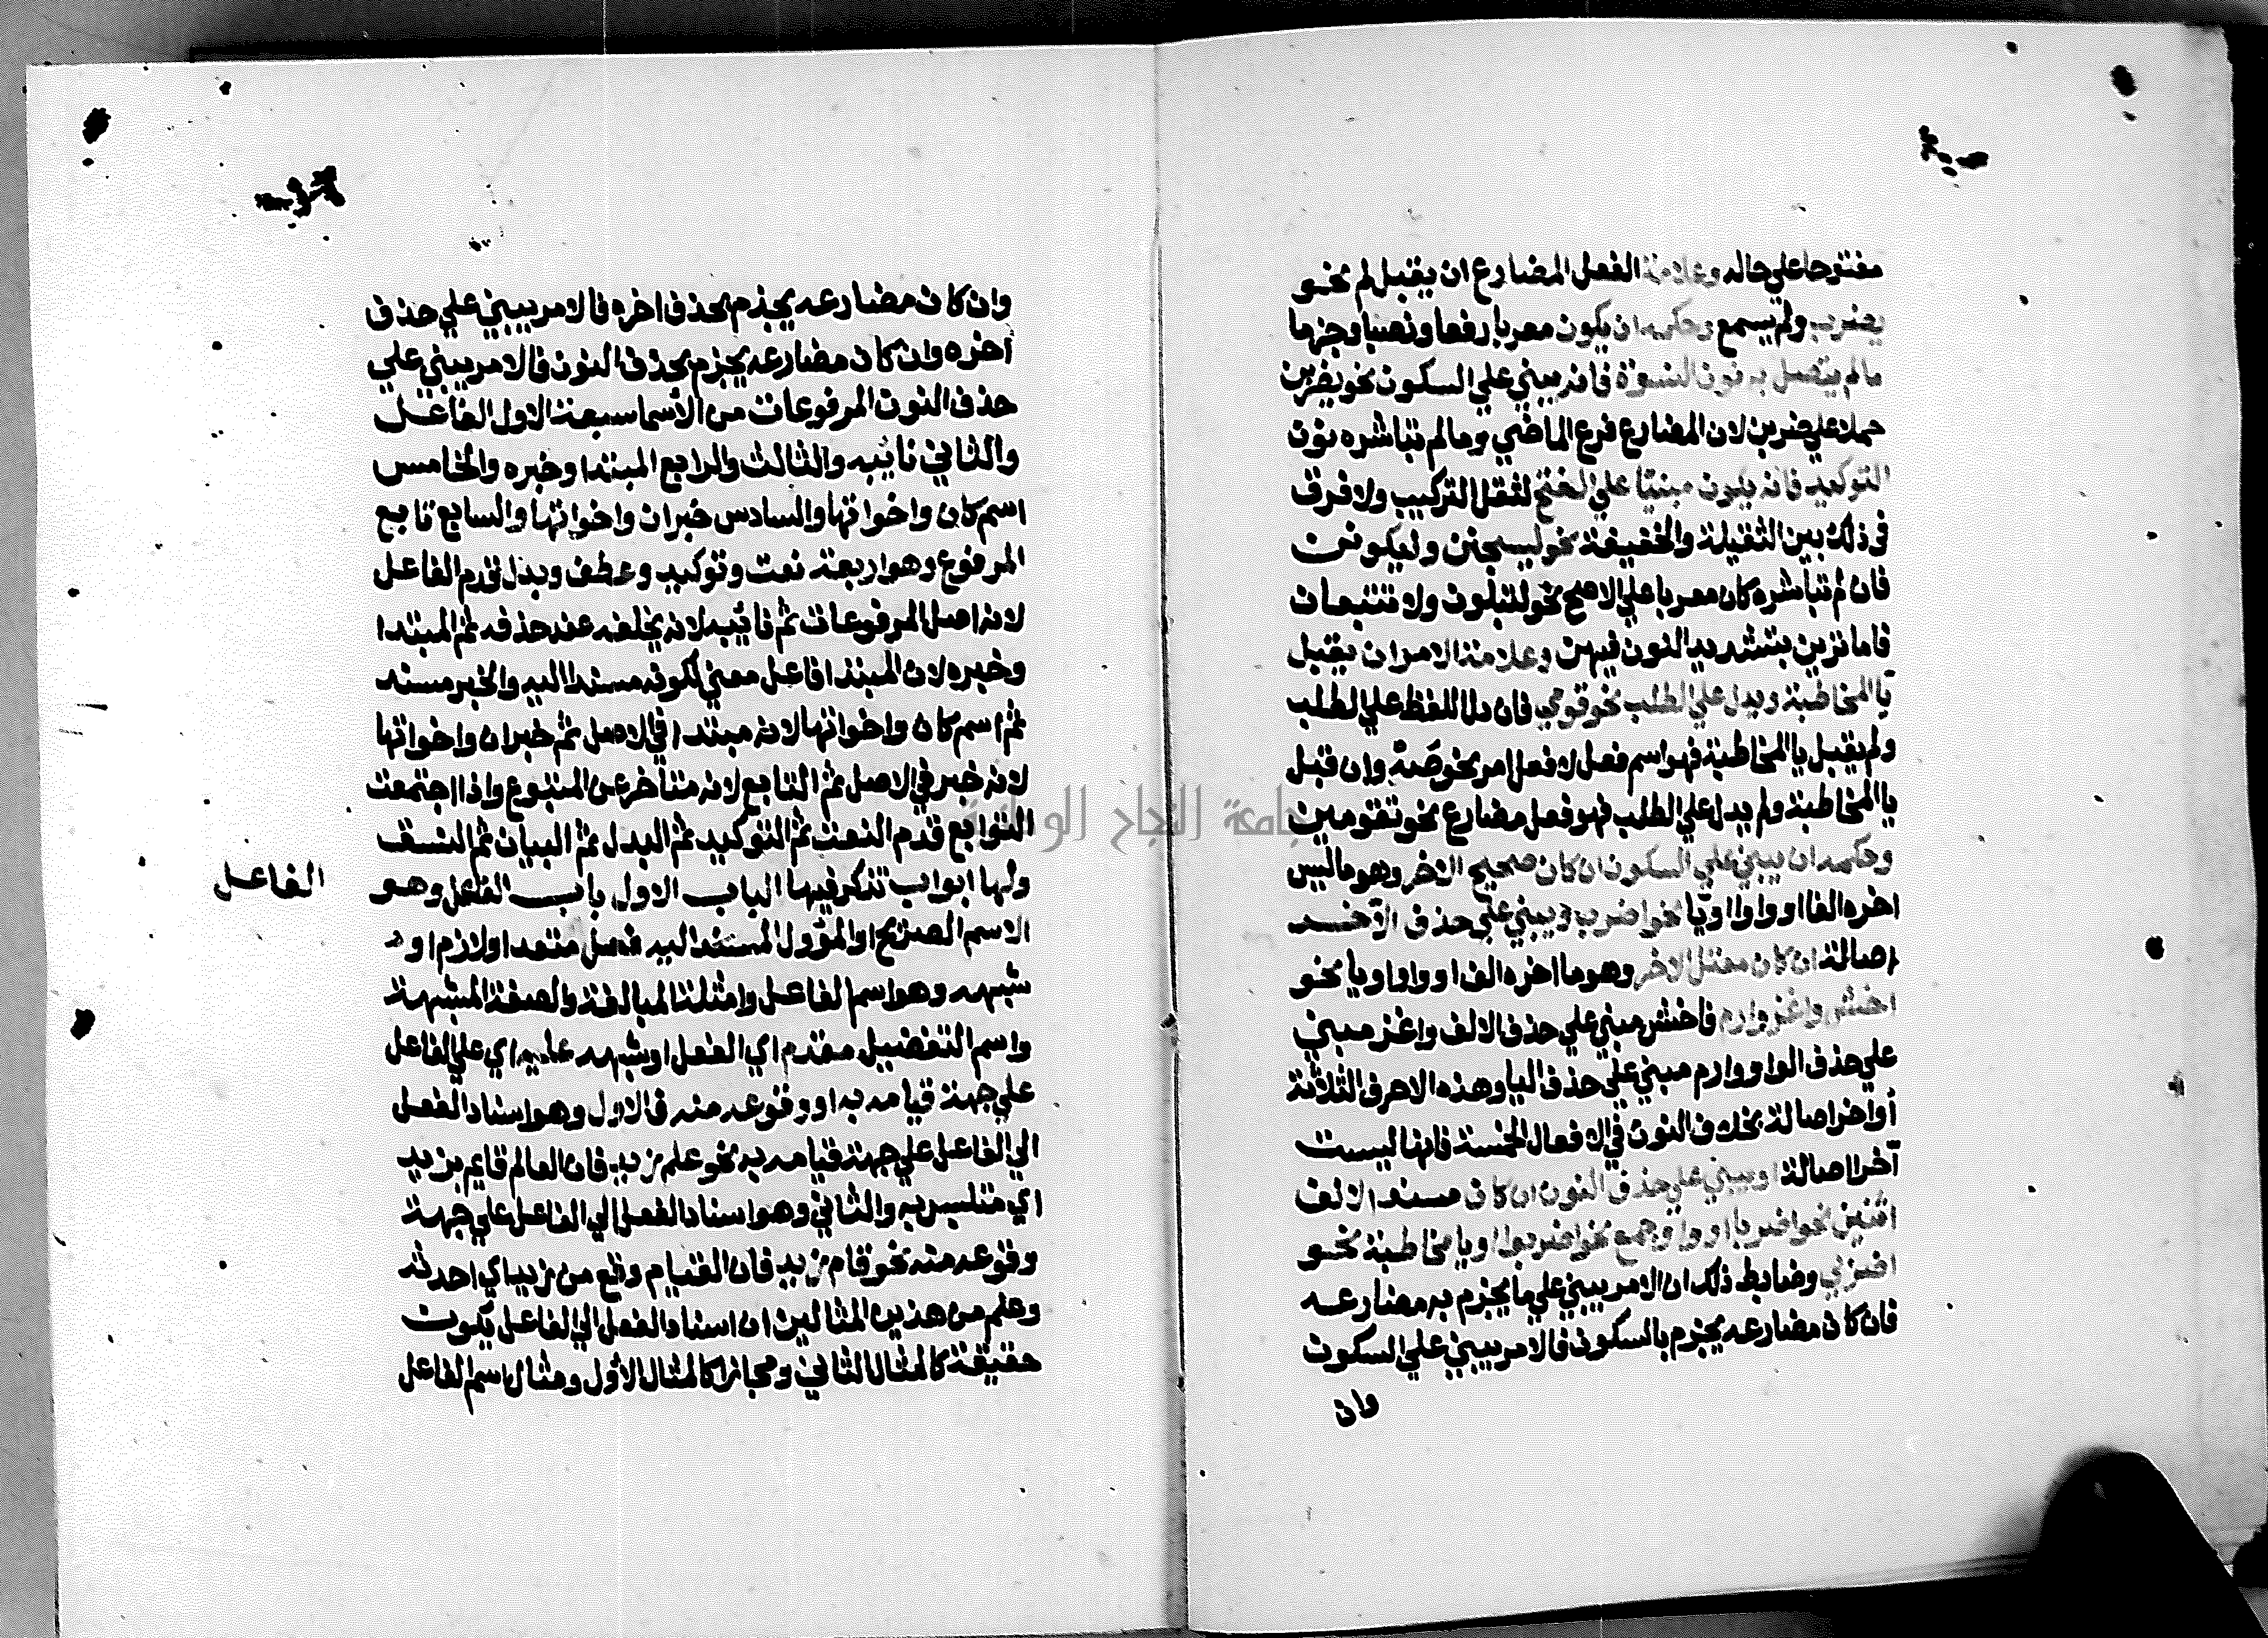 مفتوحا علي حاله وعلامة الفعل المضارع ان يقبل لم نحو
يضرب ولم يسمع وحكمه ان يكون معربا رفعا ونصبا وجزما
مالم يتصل به نون النسوة فانه يبني علي السكون نحو يضربن
حملا علي ضربن لان المضارع فرع الماضي ومالم تباشره نون
التوكيد فانه يكون مبنيا علي الفتح لثقل التركيب ولا فرق
في ذلك بين الثقيلة والخفيفة نحو ليسجنن وليكونن
فان لم تباشره كان معربا علي الاصح نحو لتبلون ولا تتبعان
فاما ترين بتشديد النون فيهن وعلامة الامر ان يقبل
يا المخاطبة ويدل علي الطلب نحو قومي فان دل اللفظ علي الطلب
ولم يقبل يا المخاطبة فهو اسم فعل لا فعل امر نحو صه وان قبل
يا المخاطبة ولم يدل علي الطلب فهو فعل مضارع نحو تقومين
وحكمه ان يبني علي السكون ان كان صحيح الاخر وهو ما ليس
اخره الفا او واوا او يا نحو اضرب ويبني علي حذف الآخر
اصالة ان كان معتل الاخر وهو ما اخره الف او واو او يا نحو
اخش واغز وارم فاخش مبني علي حذف الالف واغز مبني
علي حذف الواو وارم مبني علي حذف اليا وهذه الاحرف الثلاثة
أواخر اصالة بخلاف النون في الافعال الخمسة فانها ليست
آخرا اصالة او يبني علي حذف النون ان كان مسندا لالف
اثنين نحو اضربا او واو جمع نحو اضربوا او يا مخاطبة نحو
اضربي وضابط ذلك ان الامر يبني علي ما يجزم به مضارعه
فان كان مضارعه يجزم بالسكون فالامر يبني علي السكون
وان
وان كان مضارعه يجزم بحذف اخره فالامر يبني علي حذف
آخره وان كان مضارعه يجزم بحذف النون فالامر يبني علي
حذف النون المرفوعات من الأسما سبعة الاول الفاعل
والثاني نائبه والثالث والرابع المبتدا وخبره والخامس
اسم كان واخواتها والسادس خبر ان واخواتها والسابع تابع
المرفوع وهو اربعة نعت وتوكيد وعطف وبدل قدم الفاعل
لانه اصل المرفوعات ثم نائبه لانه يخلفه عند حذفه ثم المبتدا
وخبره لان المبتدا فاعل معني لكونه مسندا اليه والخبر مسند
ثم اسم كان واخواتها لانه مبتدا في الاصل ثم خبر ان واخواتها
لانه خبر في الاصل ثم التابع لانه متأخر عن المتبوع واذا اجتمعت
التوابع قدم النعت ثم التوكيد ثم البدل ثم البيان ثم النسق
ولها ابواب تذكر فيها الباب الاول باب الفاعل وهو
الفاعل
الاسم الصريح او المؤول المسند اليه فعل متعد او لازم او
شبهه وهو اسم الفاعل وامثلة المبالغة والصفة المشبهة
واسم التفضيل مقدم اي الفعل او شبهه عليه اي علي الفاعل
علي جهة قيامه به او وقوعه منه فالاول وهو اسناد الفعل
الي الفاعل علي جهة قيامه به نحو علم زيد فان العالم قايم بزيد
اي متلبس به والثاني وهو اسناد الفعل الي الفاعل علي جهة
وقوعه منه نحو قام زيد فان القيام وقع من زيد اي احدثه
وعلم من هذين المثالين ان اسناد الفعل الي الفاعل يكون
حقيقة كالمثال الثاني ومجازا كالمثال الأول ومثال اسم الفاعل
جامعة النجاح الوطنية